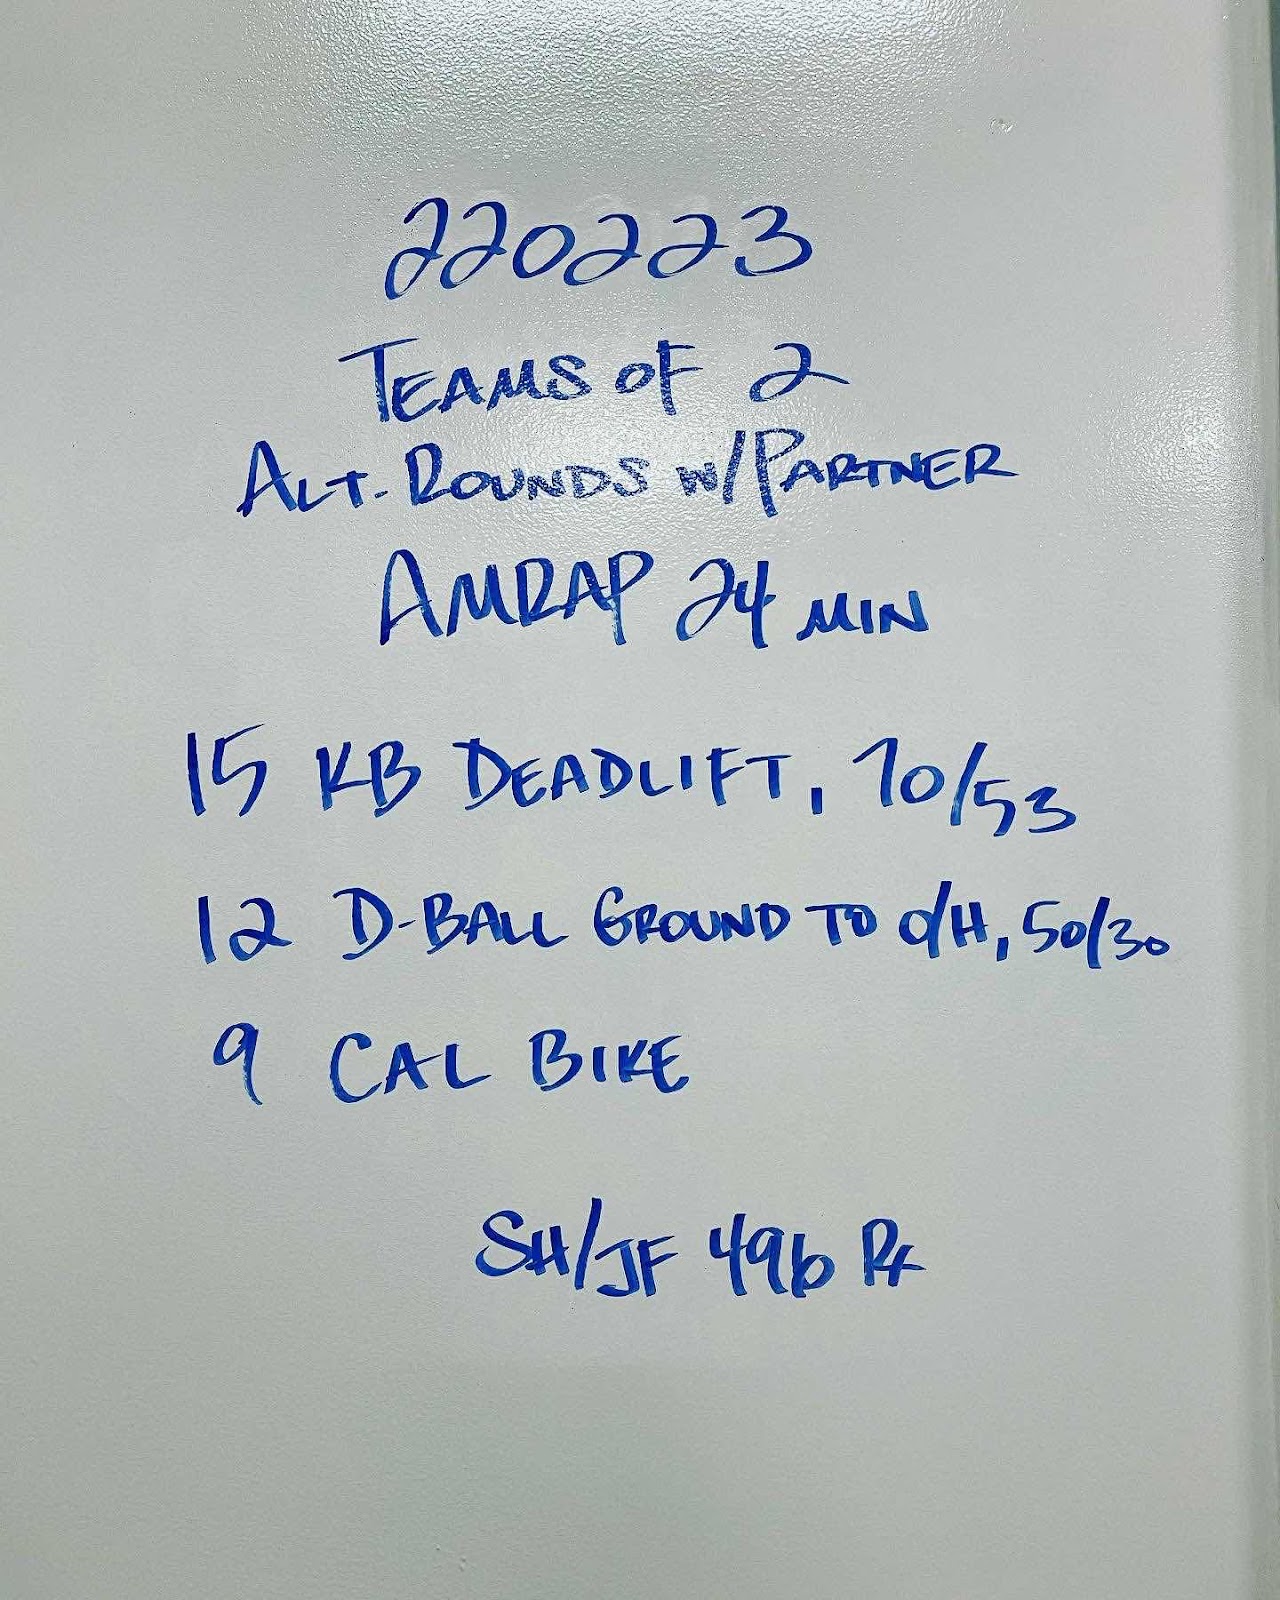 220223
TEAMS OF 2
ALT. ROUNDS W/PARTNER
AMRAP 24 MIN
15 KB DEADLIFT, 70/53
12 D-BALL GROUND TO O/H, 50/30
9 CAL BIKE
SH/JF 496 Rx